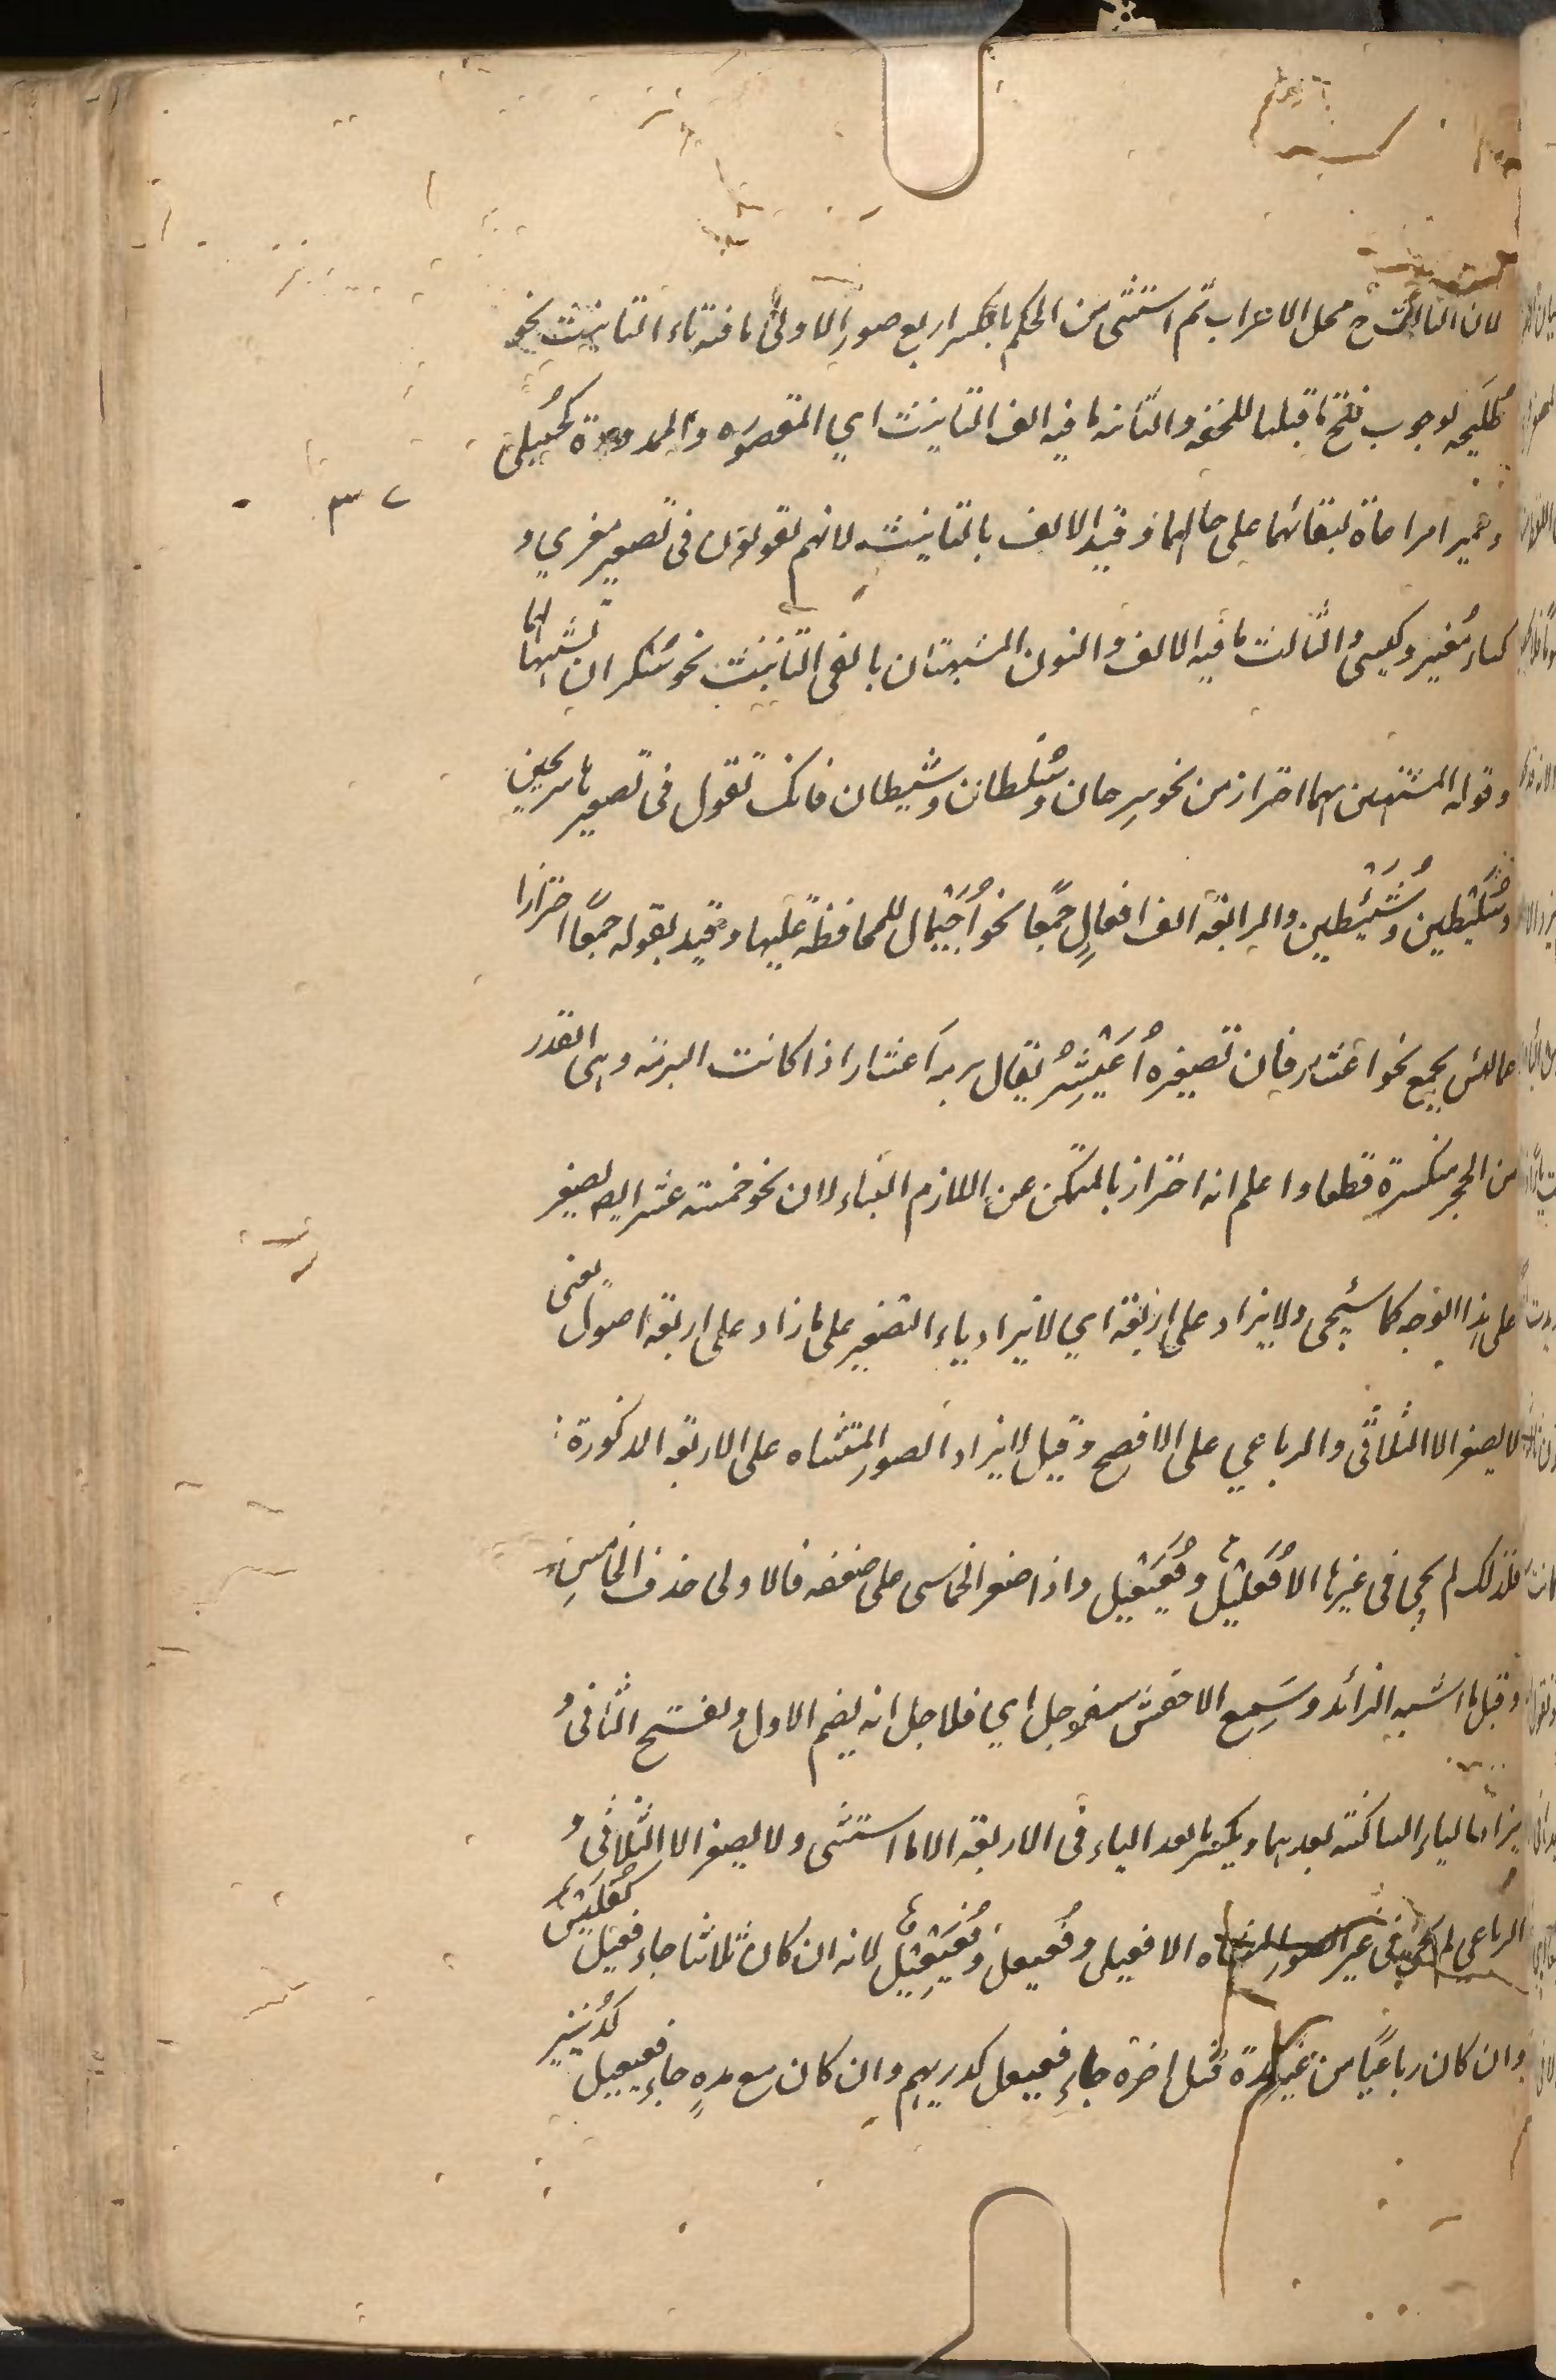 لان الثالث ح محل الاعراب ثم استثنى من الحكم بالكسر اربع صور الاولى ما فيه تاء التانيث نحو
طليحه لوجوب فتح ما قبلها للخفه والثانيه ما فيه الف التانيث اي المقصوره والممدودة كحُبيلى
وحميراء مراعاة لبقائهما على حالهما وقيد الالف بالتانيث لانهم يقولون فى تصغير مغزي و
٣٧
كساء مُغيز وكيسى والثالث ما فيه الالف والنون المشبهتان بالفى التانيث نحو سُكيران لشبهها لهما
وقوله المشبهتين بهما احتراز من نحو سِرحان وسُلطان وشيطان فانك تقول فى تصغيرها سريحين
وسُليطين وشُييطين والرابعة الف افعالٍ جمعًا نحو اُجَيْمال للمحافظة عليها وقيد بقوله جمعًا احترازا
عما ليس بجمع نحو اعشار فان تصغيره اُعَيْشِيرٌ يقال برمة اَعشار اذا كانت البرمة وهى القدر
من الحجر منكسرة قطعا واعلم انه احتراز بالمتمكن عن اللازم البناء لان نحو خمسة عشر اليه تصغير
على هذا الوجه كما سيجى ولا يزاد على اربعة اي لا يزاد ياء التصغير على ما زاد على اربعة اصول يعنى
لا يصغر الا الثلاثى والرباعي على الافصح وقيل لا يزاد الصور المستثناه على الاربعة المذكورة
فلذلك لم يجئ فى غيرها الا فُعَيْعِل وفُعَيْعِيل واذا صغر الخماسى على ضعفه فالاولى حذف الخامس
وقيل ما اشبه الزائد وسَمِع الاخفش سفيرجل اي فلاجل انه يضم الاول ويفتح الثانى و
يزاد الياء الساكنة بعدهما ويكسر ما بعد الياء فى الاربعة الا ما استثنى ولا يصغر الا الثلاثى و
الرباعى لم يجئ فى غير الصور المستثناه الا فعيل وفُعيعل وفُعَيْعِيل لانه ان كان ثلاثيا جاء فعيل كفُلَيْسٍ
وان كان رباعيًا من غير مدة قبل اخره جاء فعيعل كدريهم وان كان مع مدةٍ جاء فعيعيل كدُنينير